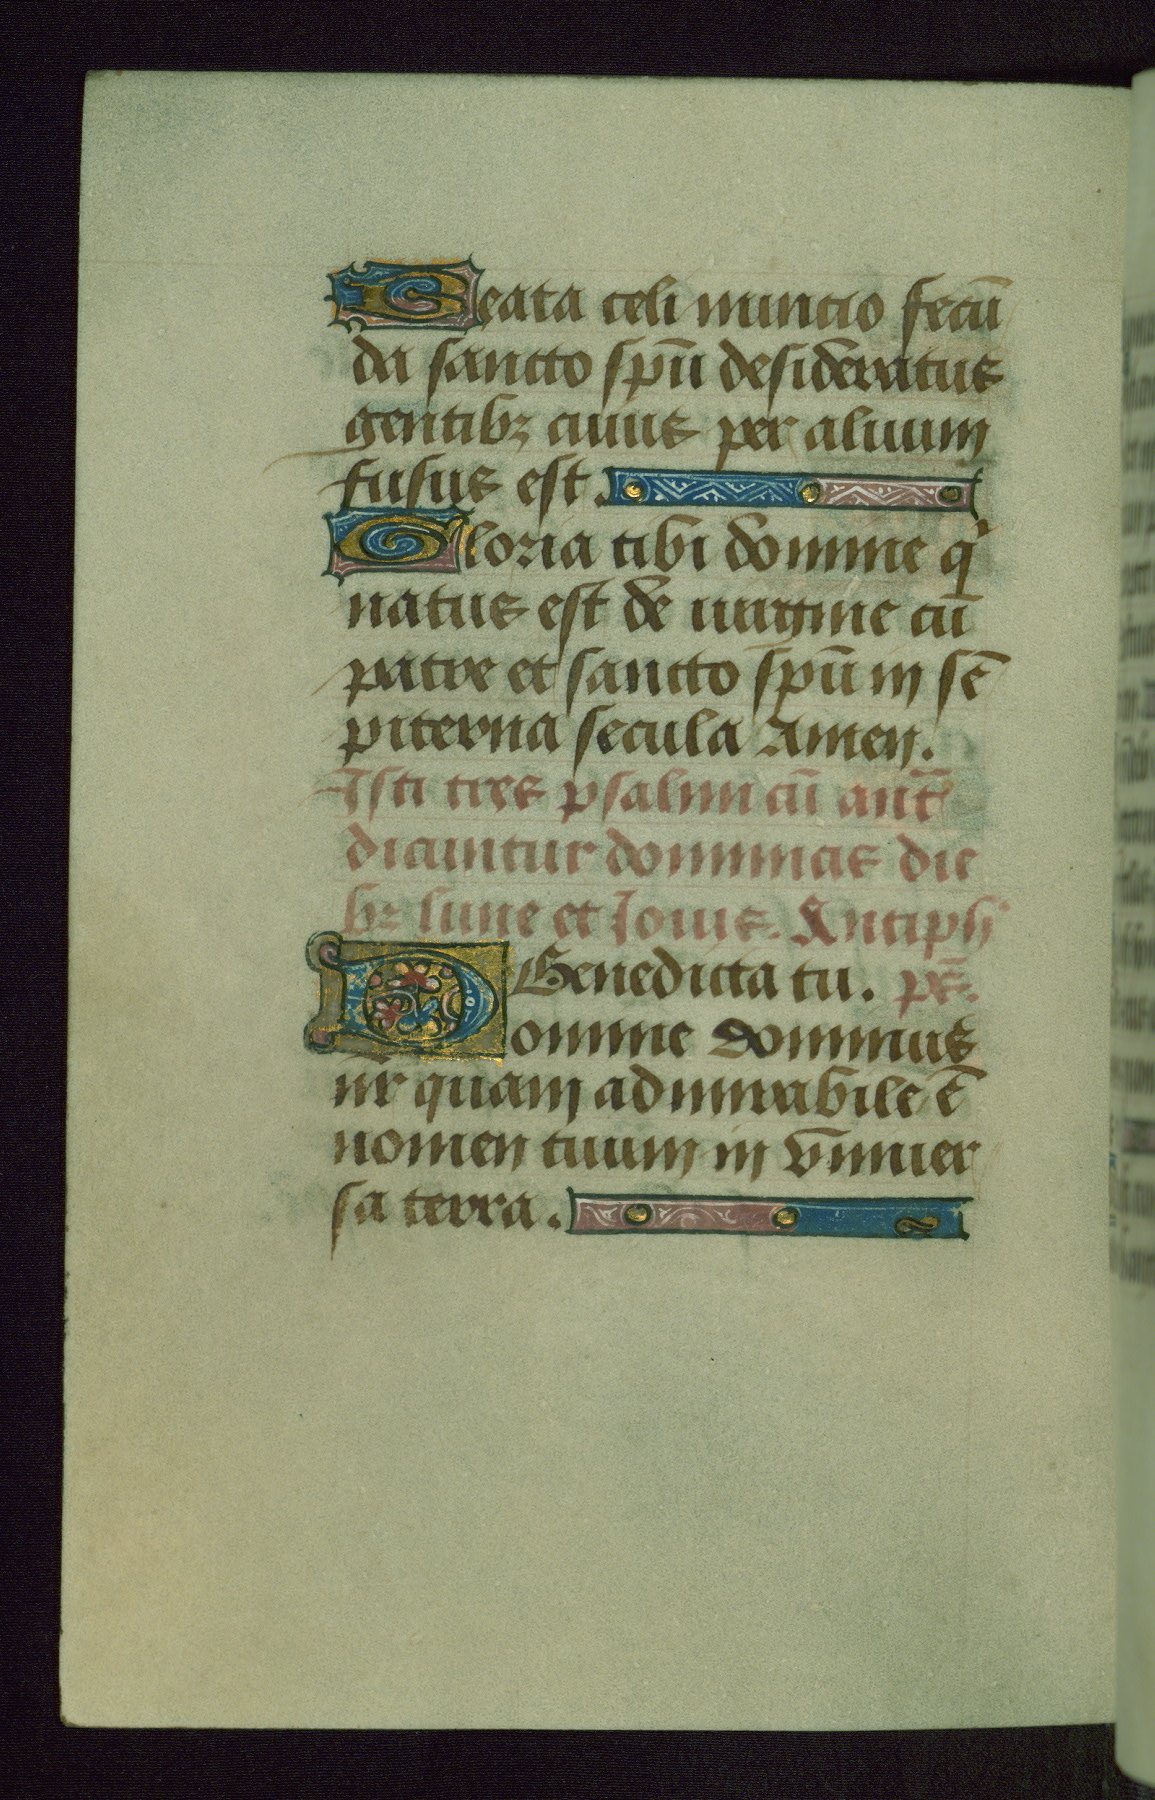 Beata celi nuncio fecū
da sancto spū desideratus
gentibꝫ cuius per aluum
fusus est.
Gloria tibi domine qͥ
natus est de uirgine cū
patre et sancto spū in sē
piterna secula Amen.
Isti tres psalmi cū antͥ
dicuntur dominicis die
bꝫ lune et Iouis. Antiph
Benedicta tu. ps̄.
Domine dominus
nr̄ quam admirabile ē
nomen tuum in vniuer
sa terra.